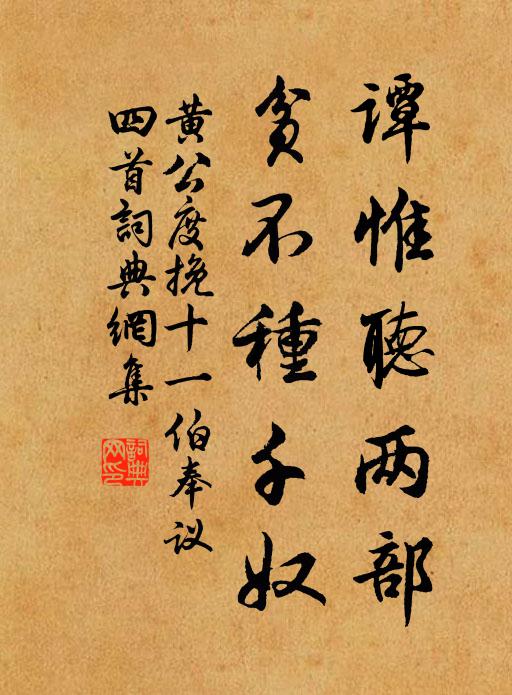 谭惟聽两部
貧不種千奴
黄公度挽十一伯奉议
四首詞典網集
詞典网印